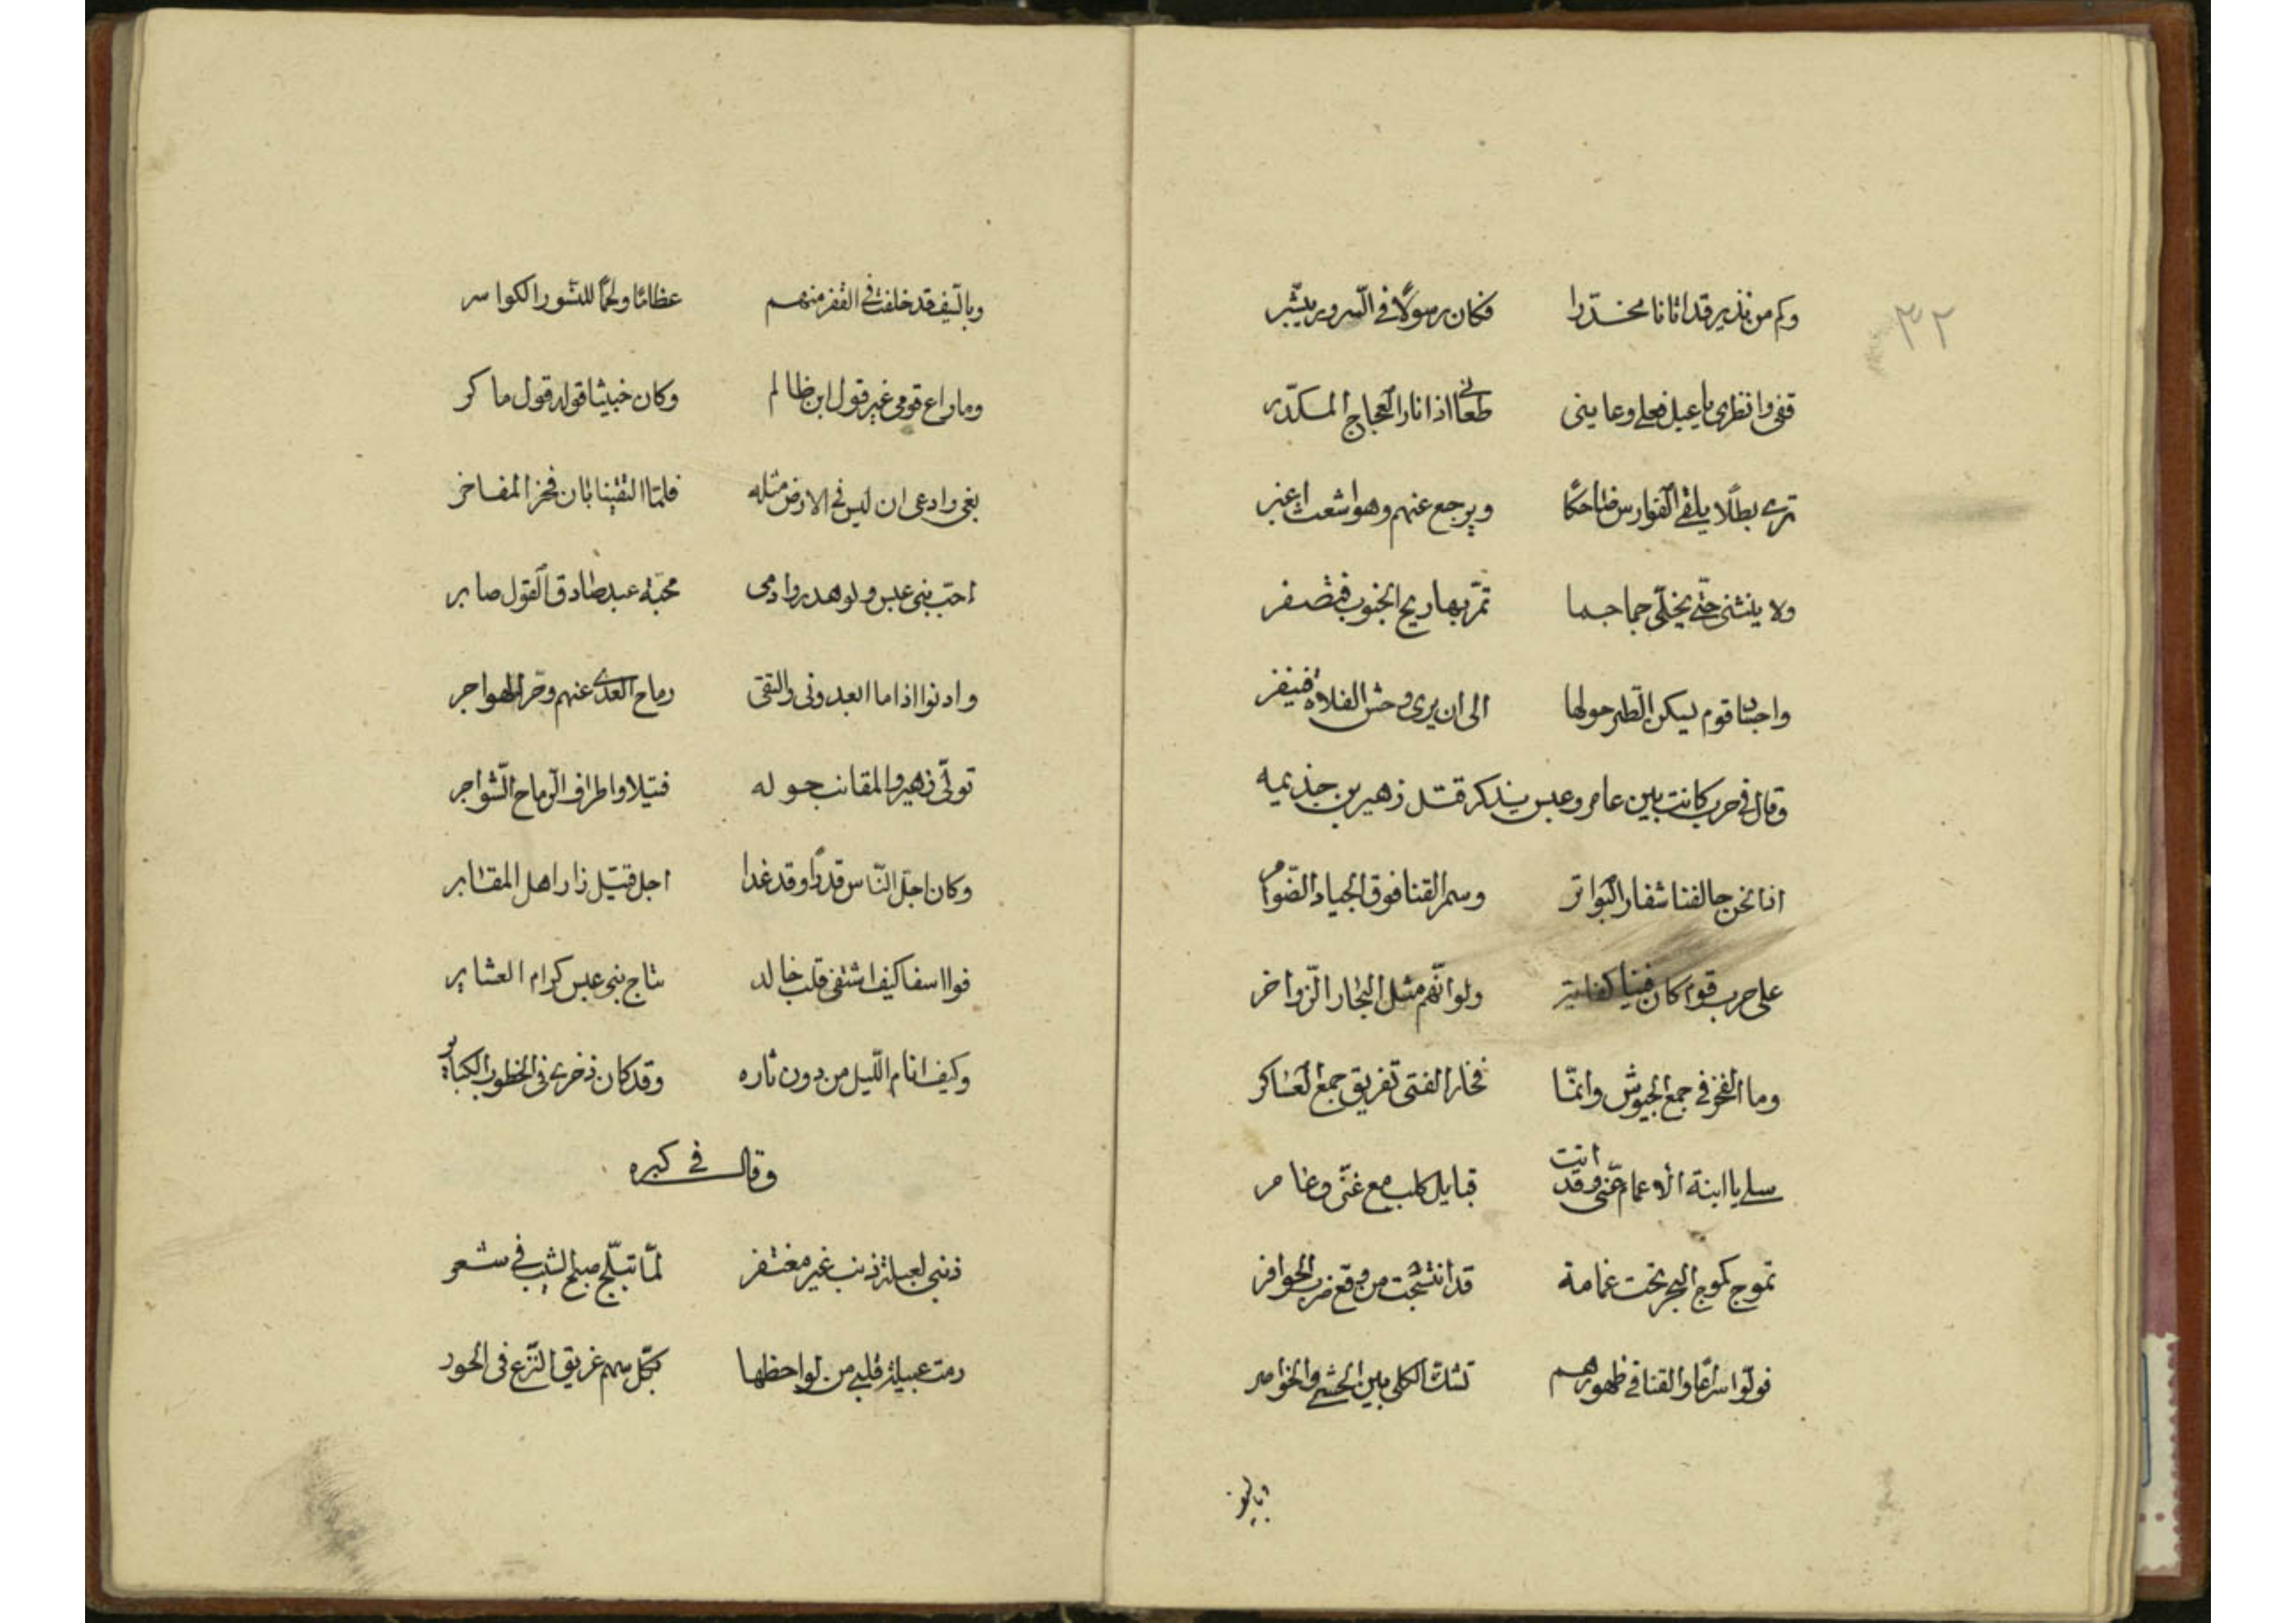 ٣٢
وكم من نذير قد اتانا محذّرا فكان رسولًا في السّرور يبشّر
قفي وانظري يا عبل فعلي وعايني طعاني اذا ثار العجاج المكدّر
تري بطلًا يلقي الفوارس ضاحكًا ويرجع عنهم وهو اشعث اغبر
ولا ينثني حتّي يخلّي جماجما تمرّ بها ريح الجنوب فتصفر
واجساد قوم يسكن الطّير حولها الى ان يرى وحش الفلاة فينفر
وقال في حرب كانت بين عامر وعبس يذكر قتل زهير بن جذيمه
اذا نحن حالفنا شفار البواتر وسمر القنا فوق الجياد الضّوامر
على حرب قوم كان فينا كفاية ولو انّهم مثل البحار الزّواخر
وما الفخر في جمع الجيوش وانّما فخار الفتى تفريق جمع العساكر
سلي يا ابنة الاعمام عنّي وقد اتت قبايل كلب مع غنّي وعامر
تموج كموج البحر تحت غمامة قد انتسجت من وقع ضرب الحوافر
فولّوا سراعًا والقنا في ظهورهم تشكّ الكلى بين الحشي والخواصر
وبالسيف
وبالسّيف قد خلفت في القفر منهم عظامًا ولحمًا للنّسور الكواسر
وما راع قومي غير قول ابن ظالم وكان خبيثا قوله قول ماكر
بغي وادعى ان ليس في الارض مثله فلمّا التقينا بان فخر المفاخر
احبّ بني عبس ولو هدروا دمى محبّة عبد صادق القول صابر
وادنوا اذا ما ابعدوني والتقى رماح العدي عنهم وحرّ الهواجر
تولّى زهير والمقانب حوله قتيلا واطراف الرّماح الشّواجر
وكان اجلّ النّاس قدرًا وقد غدا اجل قتيل زار اهل المقابر
فوا اسفا كيف اشتفى قلب خالد بتاج بني عبس كرام العشاير
وكيف انام اللّيل من دون ثاره وقد كان ذخري في الخطوب الكباير
وقال في كبره
ذنبي لعبلة ذنب غير مغتفر لمّا تبلّج صبح الشيب في شعر
رمت عبيلة قلبي من لواحظها بكلّ سهم غريق النّزع في الحور